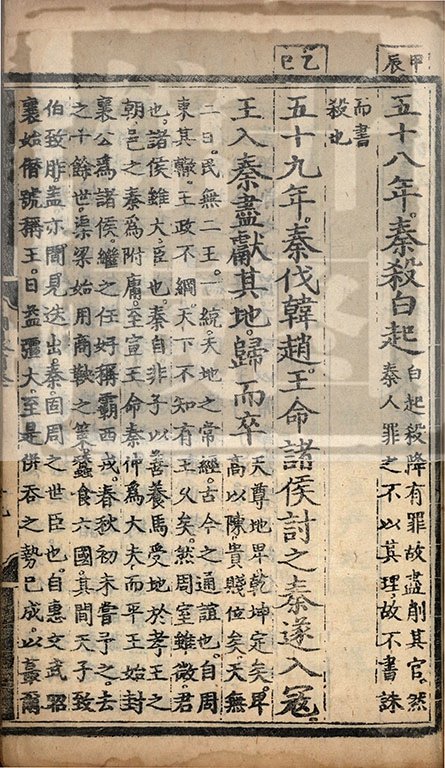 甲辰
五十八年。秦殺白起
白起殺降有罪故盡削其官。然
秦人罪之不以其理。故不書誅
而書
殺也
乙巳
五十九年。秦伐韓趙。王命諸侯討之秦遂入寇。
王入秦盡獻其地。歸而卒
天尊地卑乾坤定矣。卑
高以陳。貴賤位矣。天無
二日。民無二王。一統。天地之常經。古今之通誼也。自周
東其轍。王政不綱。天下不知有王久矣。然周室雖微。君
也。諸侯雖大。臣也。秦自非子以善養馬受地於孝王之
朝。邑之秦爲附庸。至宣王命秦仲爲大夫。而平王始封
襄公爲諸侯。繼之任好稱霸西戎。春秋初未嘗予之。去
之十餘世。渠梁始用商鞅之策。蠶食六國。其間天子致
伯致胙。盖亦間見迭出秦。固周之世臣也。自惠文武昭
襄始僭號稱王。日益彊大。至是併吞之勢已成。以蕞爾